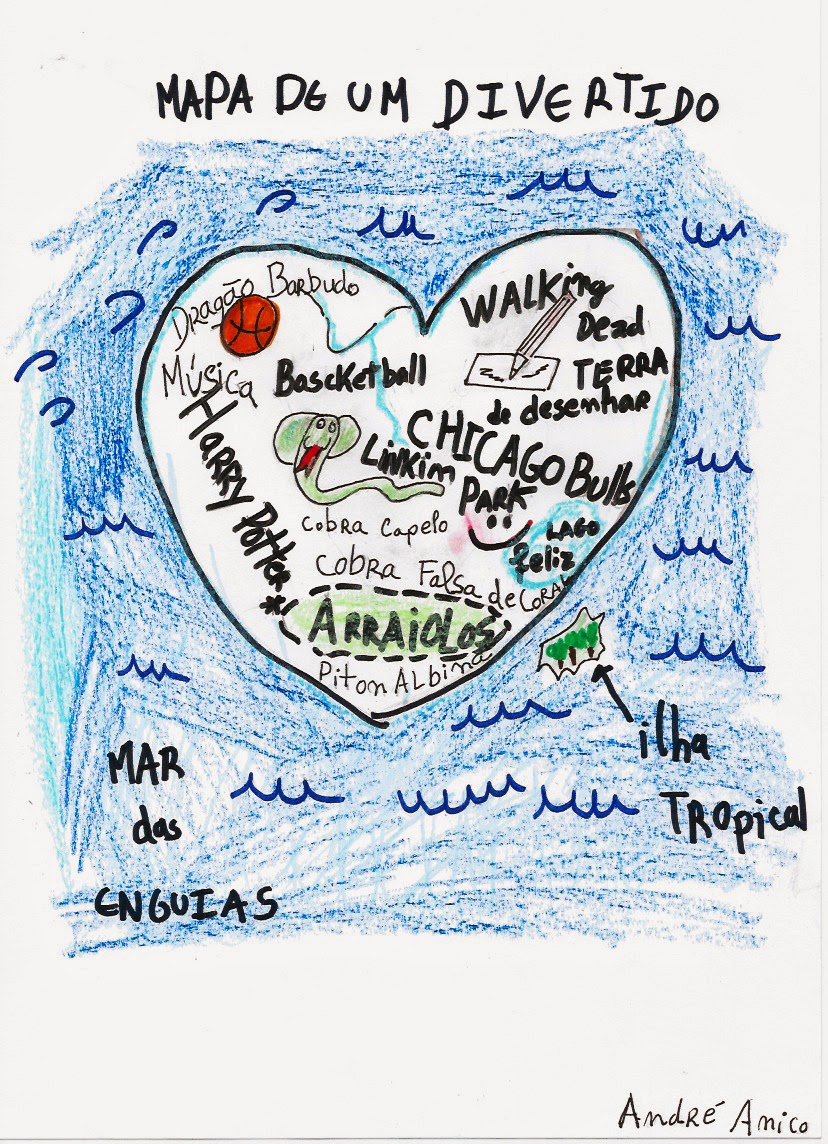 MAPA DE UM DIVERTIDO
Dragão Barbudo
Música
Bascketball
WALKing
Dead
TERRA
de desenhar
HARRY Potter *
CHICAGO Bulls
LiNKim
PARK
Cobra Capelo
LAGO
feliz
COBRA Falsa de CORAL
ARRAiOLOS
Piton ALbina
ilha
TROpical
MAR
das
ENGUIAS
André Amico